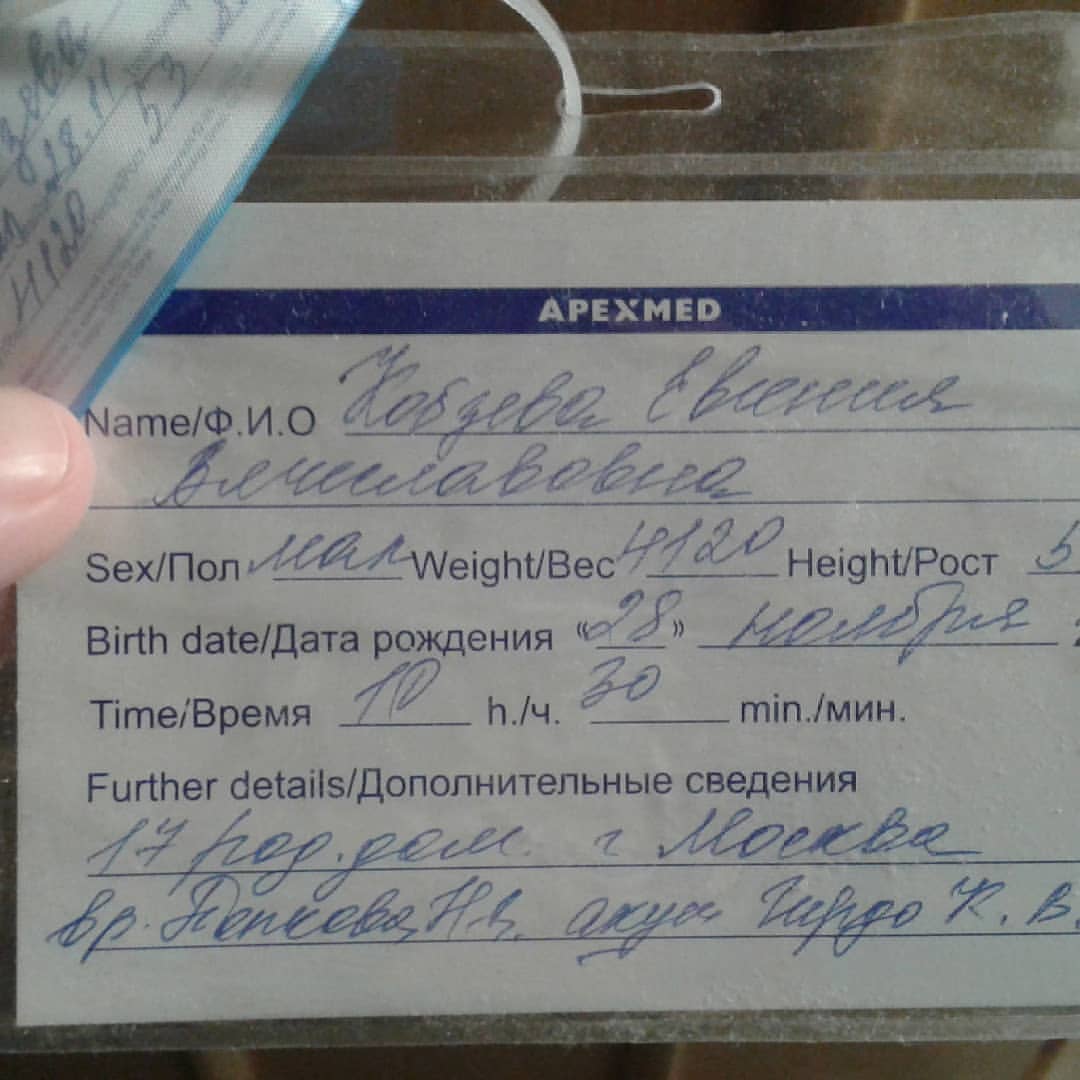 зева
28.11
53
4120
APEXMED
Name/Ф.И.О Кобзева Евгения
Вячиславовна
Sex/Пол мал Weight/Вес 4120 Height/Рост 5
Birth date/Дата рождения «28» ноября
Time/Время 10 h./ч. 30 min./мин.
Further details/Дополнительные сведения
17 род.дом. г Москва
вр. Н.В. акуш Гирдо К.В.